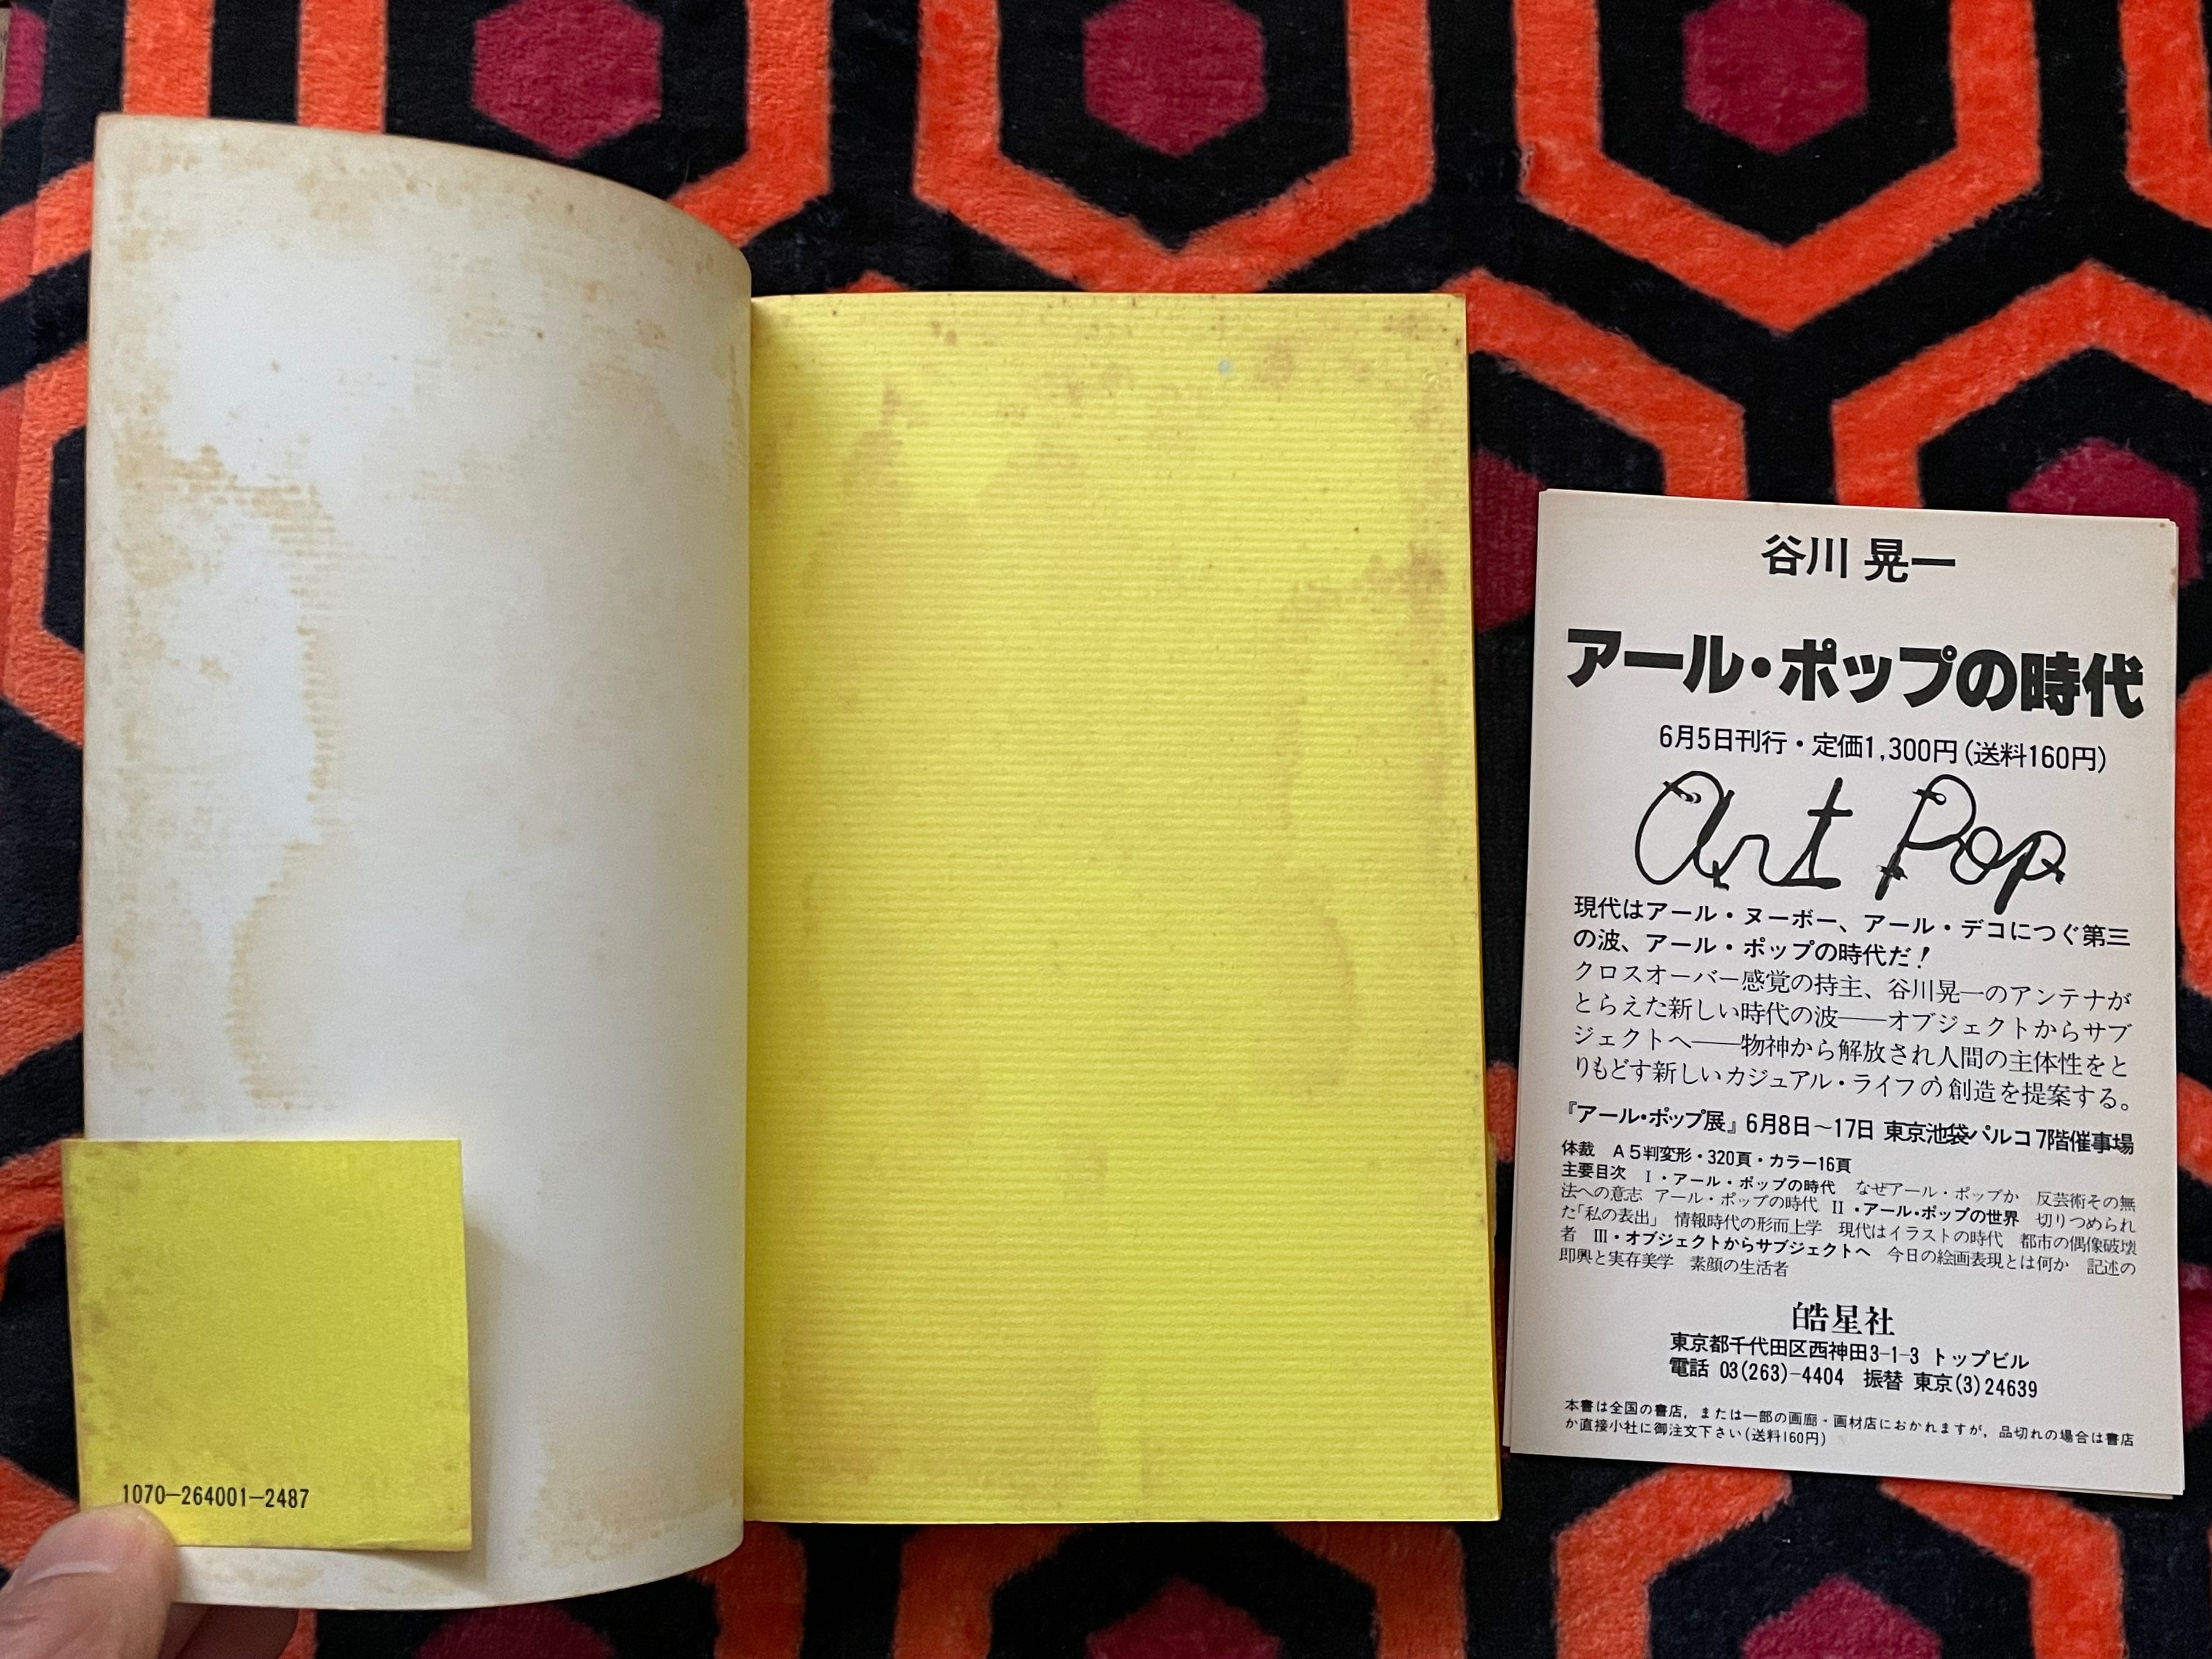 1070-264001-2487
谷川 晃一
アール・ポップの時代
6月5日刊行・定価1,300円(送料160円)
Art Pop
現代はアール・ヌーボー、アール・デコにつぐ第三
の波、アール・ポップの時代だ!
クロスオーバー感覚の持主、谷川晃一のアンテナが
とらえた新しい時代の波——オブジェクトからサブ
ジェクトへ——物神から解放され人間の主体性をと
りもどす新しいカジュアル・ライフの創造を提案する。
『アール・ポップ展』6月8日〜17日 東京池袋パルコ7階催事場
体裁 A5判変形・320頁・カラー16頁
主要目次 Ⅰ・アール・ポップの時代 なぜアール・ポップか 反芸術その無
法への意志 アール・ポップの時代 Ⅱ・アール・ポップの世界 切りつめられ
た「私の表出」 情報時代の形而上学 現代はイラストの時代 都市の偶像破壊
者 Ⅲ・オブジェクトからサブジェクトへ 今日の絵画表現とは何か 記述の
即興と実存美学 素顔の生活者
皓星社
東京都千代田区西神田3-1-3 トップビル
電話 03(263)-4404 振替 東京(3)24639
本書は全国の書店，または一部の画廊・画材店におかれますが，品切れの場合は書店
か直接小社に御注文下さい(送料160円)